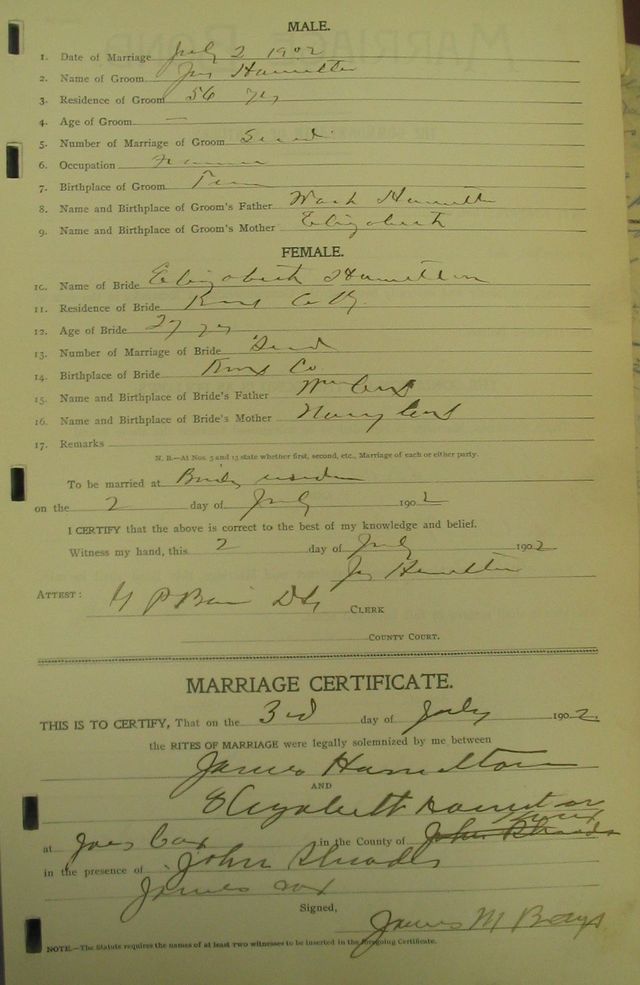 MALE.
1. Date of Marriage July 2 1902
2. Name of Groom Jas Hamilton
3. Residence of Groom 56 yrs
4. Age of Groom —
5. Number of Marriage of Groom Second
6. Occupation Farmer
7. Birthplace of Groom Tenn
8. Name and Birthplace of Groom's Father Wash Hamilton
9. Name and Birthplace of Groom's Mother Elizabeth
FEMALE.
10. Name of Bride Elizabeth Hamilton
11. Residence of Bride Knox Co Ky.
12. Age of Bride 27 yrs
13. Number of Marriage of Bride Second
14. Birthplace of Bride Knox Co
15. Name and Birthplace of Bride's Father Wm
16. Name and Birthplace of Bride's Mother Nancy
17. Remarks
N. B.—At Nos. 5 and 13 state whether first, second, etc., Marriage of each or either party.
To be married at Brides residence
on the 2 day of July 1902
I CERTIFY that the above is correct to the best of my knowledge and belief.
Witness my hand, this 2 day of July 1902
Jas Hamilton
ATTEST: CLERK
COUNTY COURT.
MARRIAGE CERTIFICATE.
THIS IS TO CERTIFY, That on the 3rd day of July 1902.
the RITES OF MARRIAGE were legally solemnized by me between
James Hamilton
AND
Elizabeth Hamilton
at Joes Cox in the County of Knox John Rhoads
in the presence of John Rhoads
James Cox
Signed,
James M Bays
NOTE.—The Statute requires the names of at least two witnesses to be inserted in the foregoing Certificate.